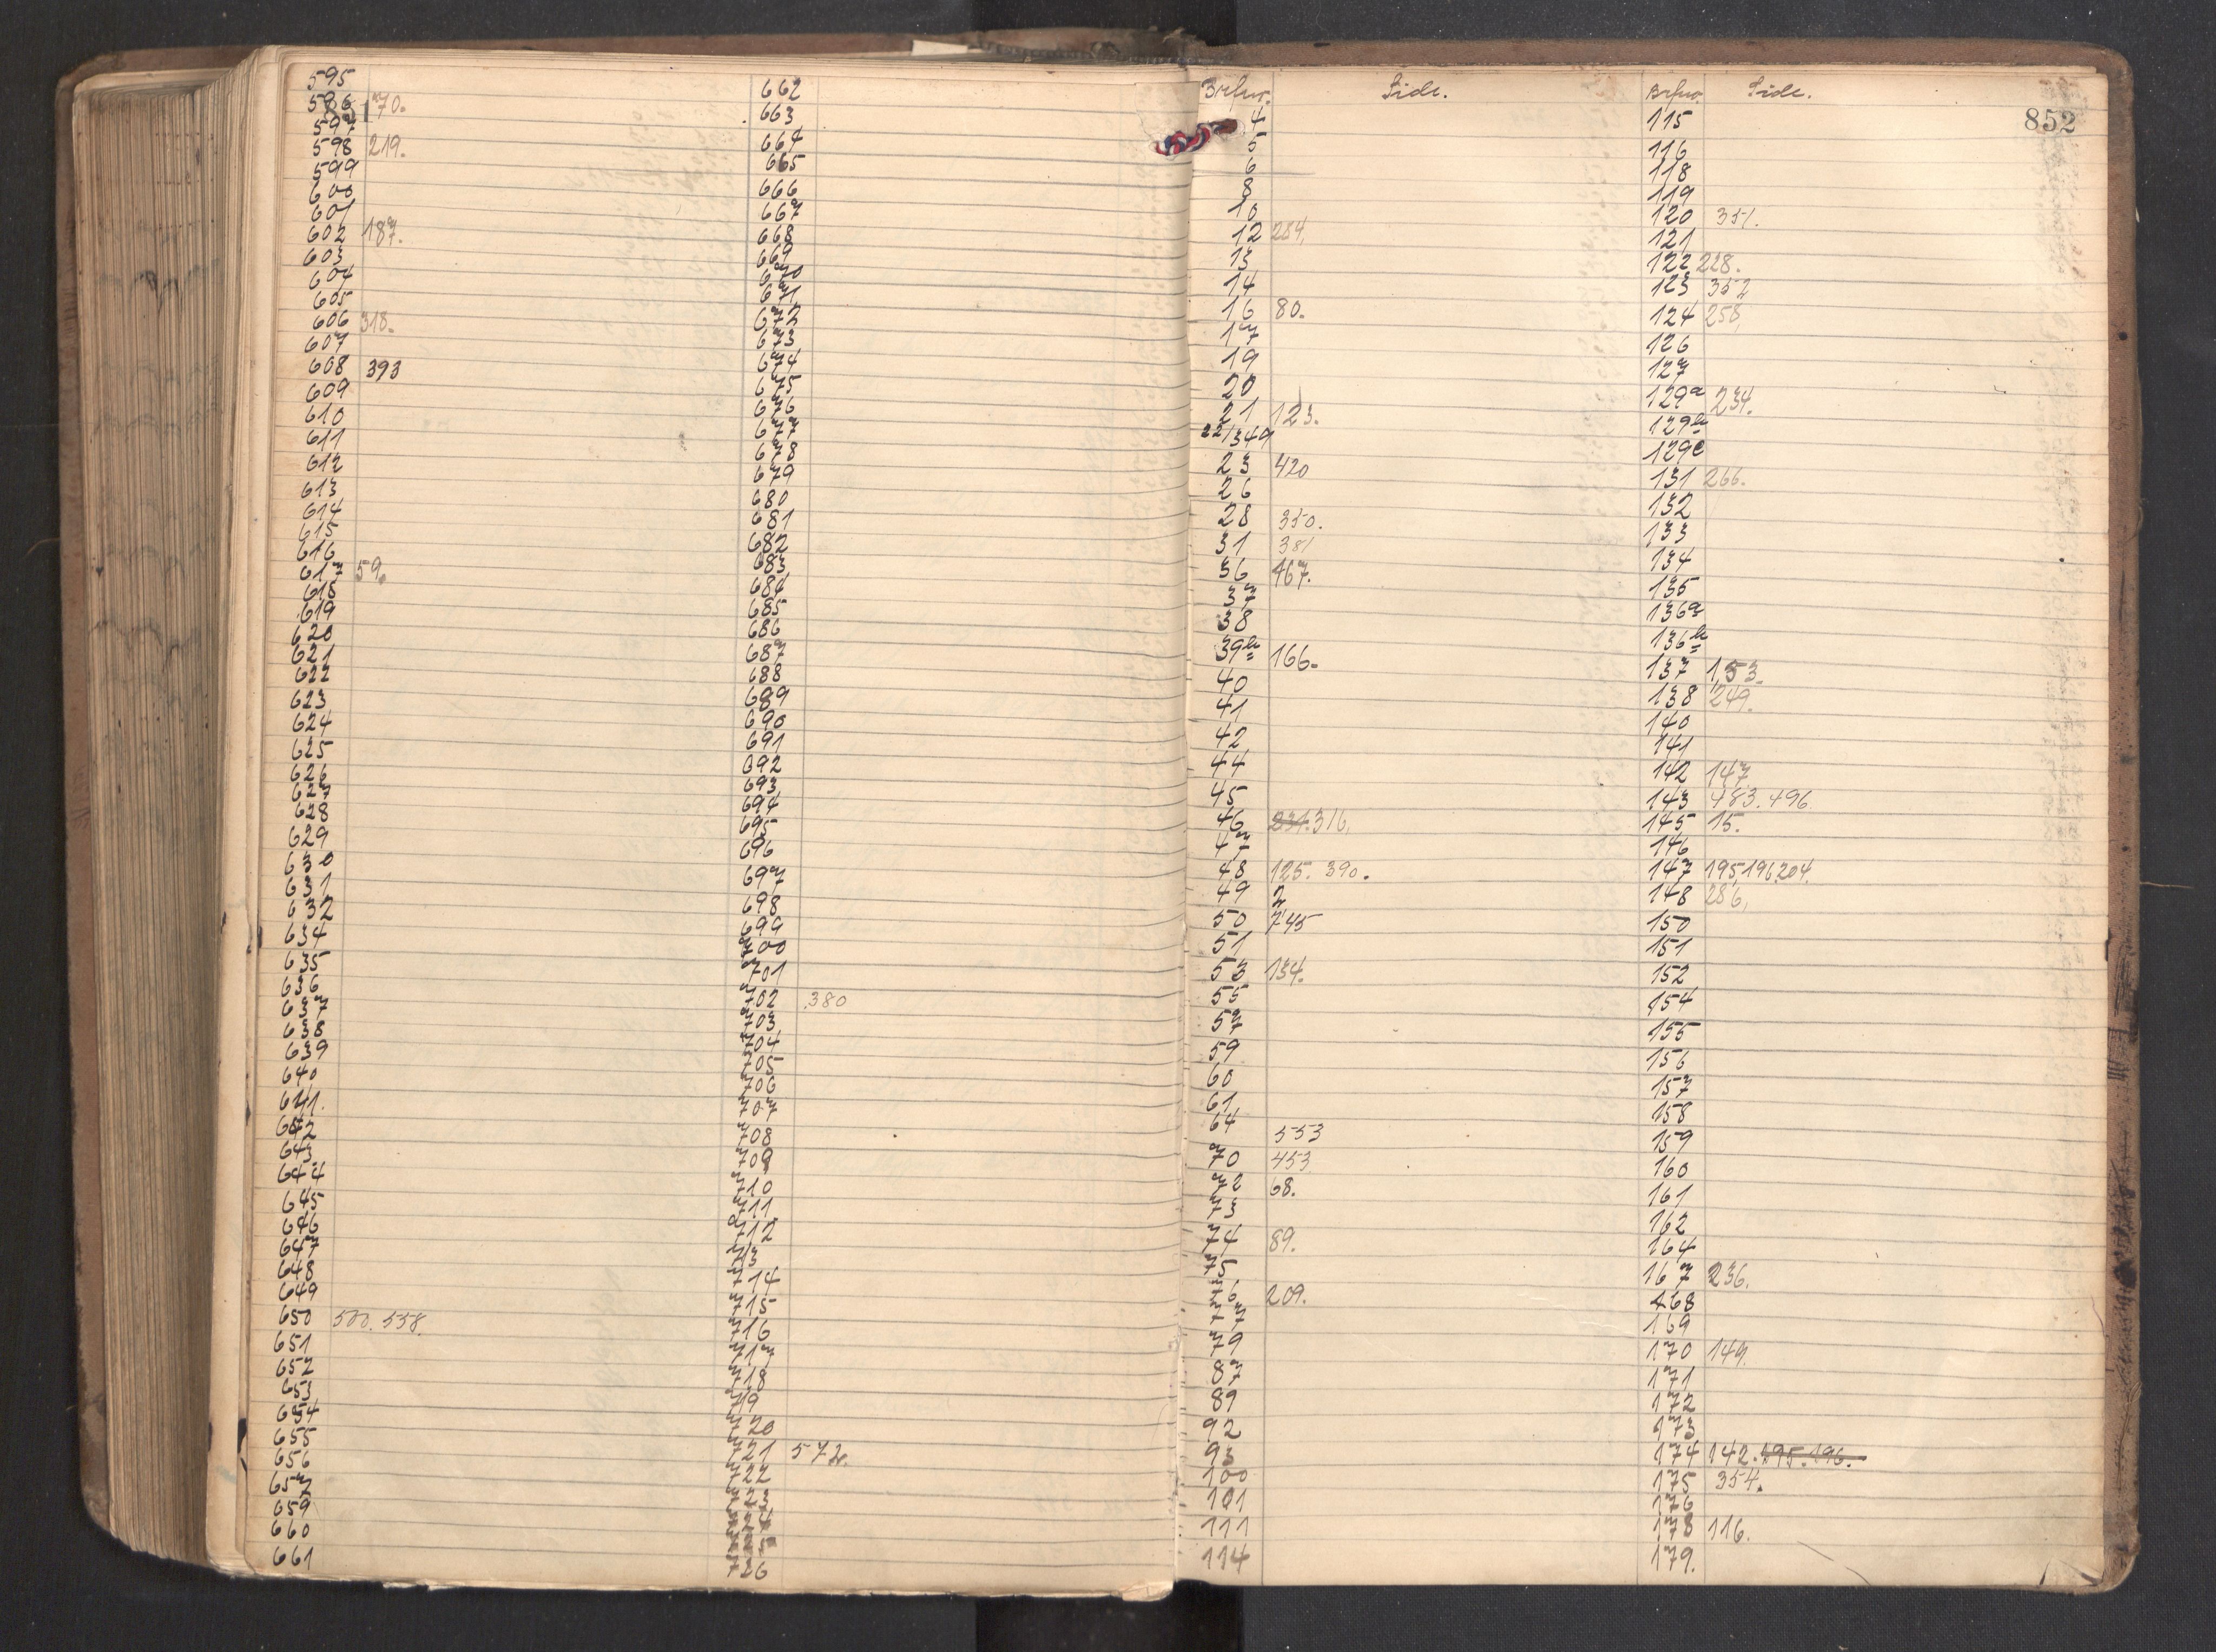 595
596 170.
597
598 219.
599
600
601
602 187.
603
604
605
606 318.
607
608 393
609
610
611
612
613
614
615
616
617 59.
618
619
620
621
622
623
624
625
626
627
628
629
630
631
632
634
635
636
637
638
639
640
641.
642
643
644
645
646
647
648
649
650 500. 558.
651
652
653
654
655
656
657
659
660
661
662
663
664
665
666
667
668
669
670
671
672
673
674
675
676
677
678
679
680
681
682
683
684
685
686
687
688
689
690
691
692
693
694
695
696
697
698
699
700
701
702 380
703
704
705
706
707
708
709
710
711
712
713
714
715
716
717
718
719
720
721 572.
722
723
726
Brfnr. Side.
4
5
6
8
10
12 284.
13
14
16 80.
17
19
20
21 123.
22/349
23 420
26
28 350.
31 381
36 467.
37
38
39b 166.
40
41
42
44
45
46 231. 316.
47
48 125. 390.
49 2
50 745
51
53 134.
55
57
59
60
61
64 553
70 453
72 68.
73
74 89.
75
76 209.
77
79
87
89
92
93
100
101
111
114
Brfnr. Side.
852
115
116
118
119
120 351.
121
122 228.
123 352
124 258
126
127
129a 234.
129b
129c
131 266.
132
133
134
135
136a
136b
137 153.
138 249.
140
141
142 147
143 483. 496
145 15.
146
147 195, 196. 204.
148 286.
150
151
152
154
155
156
157
158
159
160
161
162
164
167 236.
168
169
170 149.
171
172
173
174 142. 195. 196.
175 354.
176
178 116.
179.